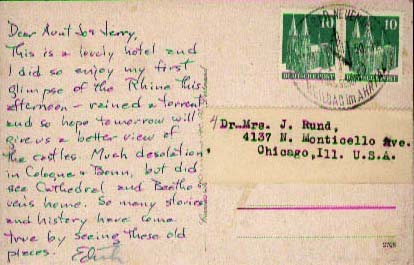 Dear Aunt Jos Jerry,
This is a lovely hotel and
I did so enjoy my first
glimpse of the Rhine this
afternoon - rained a torrent
and so hope tomorrow will
give us a better view of
the castles. Much desolation
in Cologne & Bonn, but did
see Cathedral and Beetho
vens home. So many stories
and history have come
true by seeing these old
places. Edith
10 10
DEUTSCHE POST DEUTSCHE POST
BAD NEUEN
Dr-Mrs. J. Rund,
4137 N. Monticello Ave.
Chicago, Ill. U.S.A.